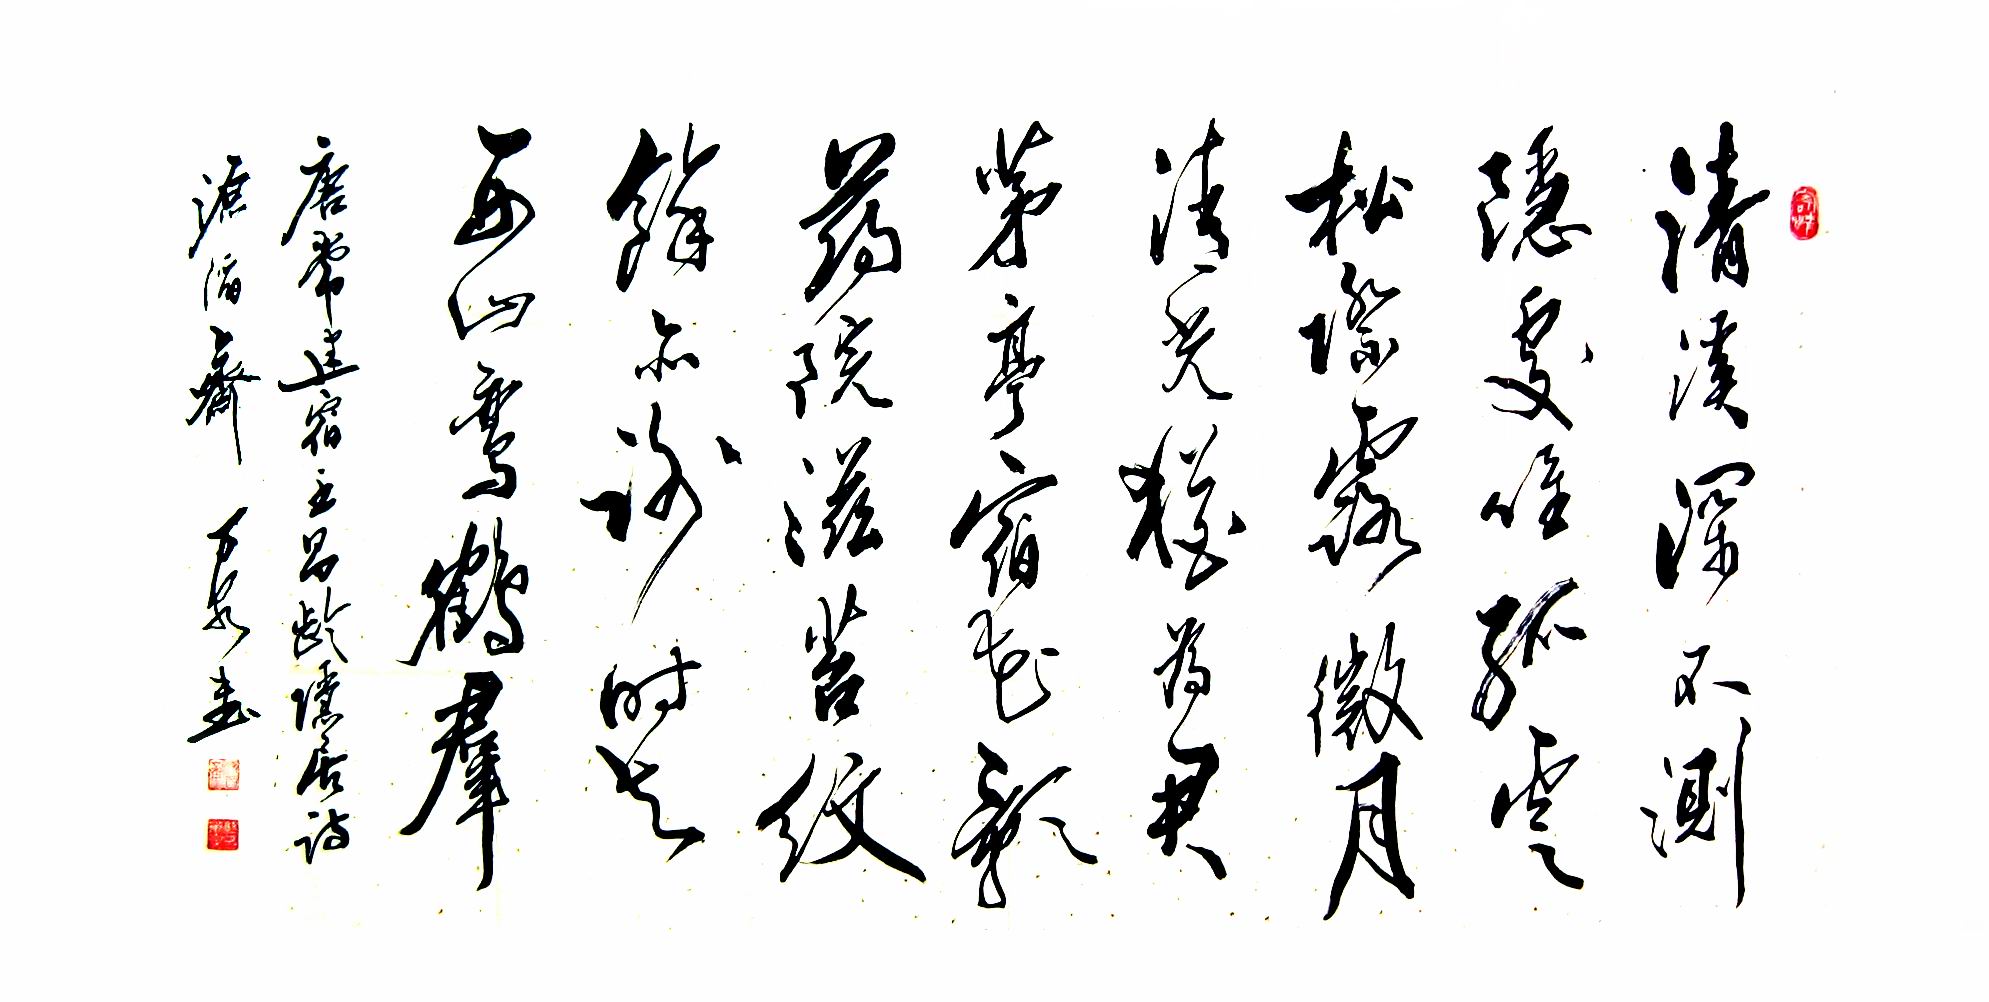 清溪深不測
隱處唯孤雲
松際露微月
清光猶為君
茅亭宿花影
葯院滋苔紋
餘亦謝时去
西山鸞鶴羣
唐常建宿王昌齡隱居詩
齋 万泉書